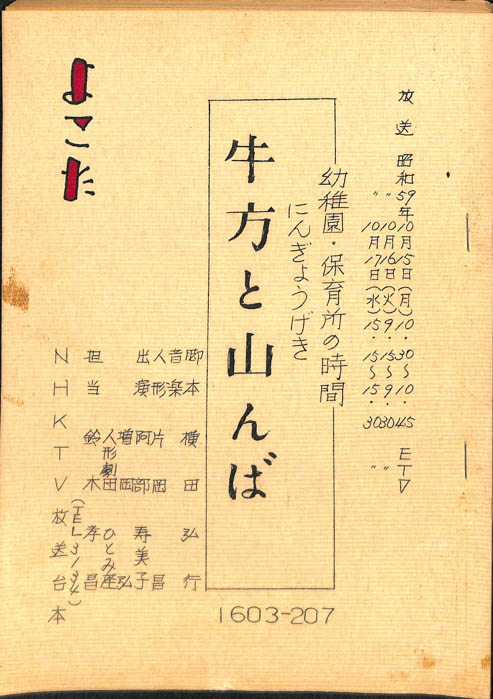 放送 昭和59年10月15日(月)10・30〜10・45 ETV
〃 10月16日(火)9・15〜9・30 〃
〃 10月17日(水)15・15〜15・30
幼稚園・保育所の時間
にんぎょうげき
牛方と山んば
よこた
脚本 横田弘行
音楽
人形 片岡昌
出演 阿部寿美子
増岡弘
人形劇ひとみ座
担当 鈴木孝昌
NHKTV放送台本
1603-207